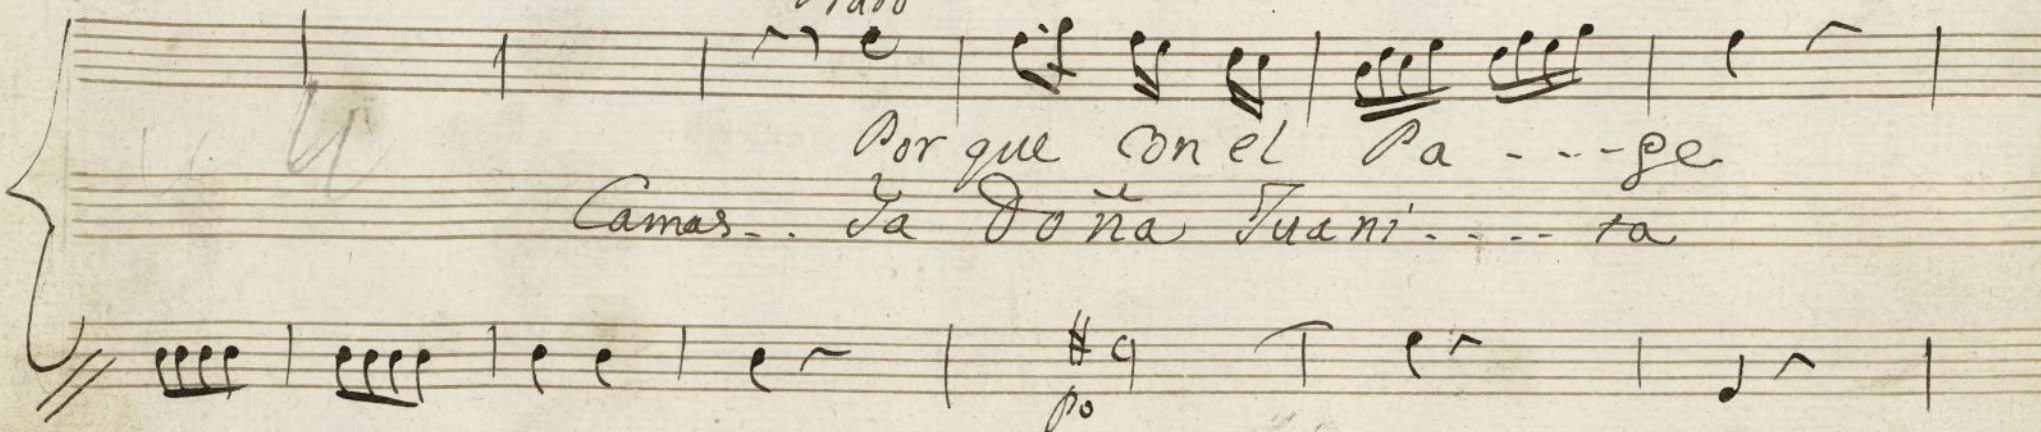 Por que con el Pa - - - - ge
Camas - - Ya Doña Juani - - - - ta
po